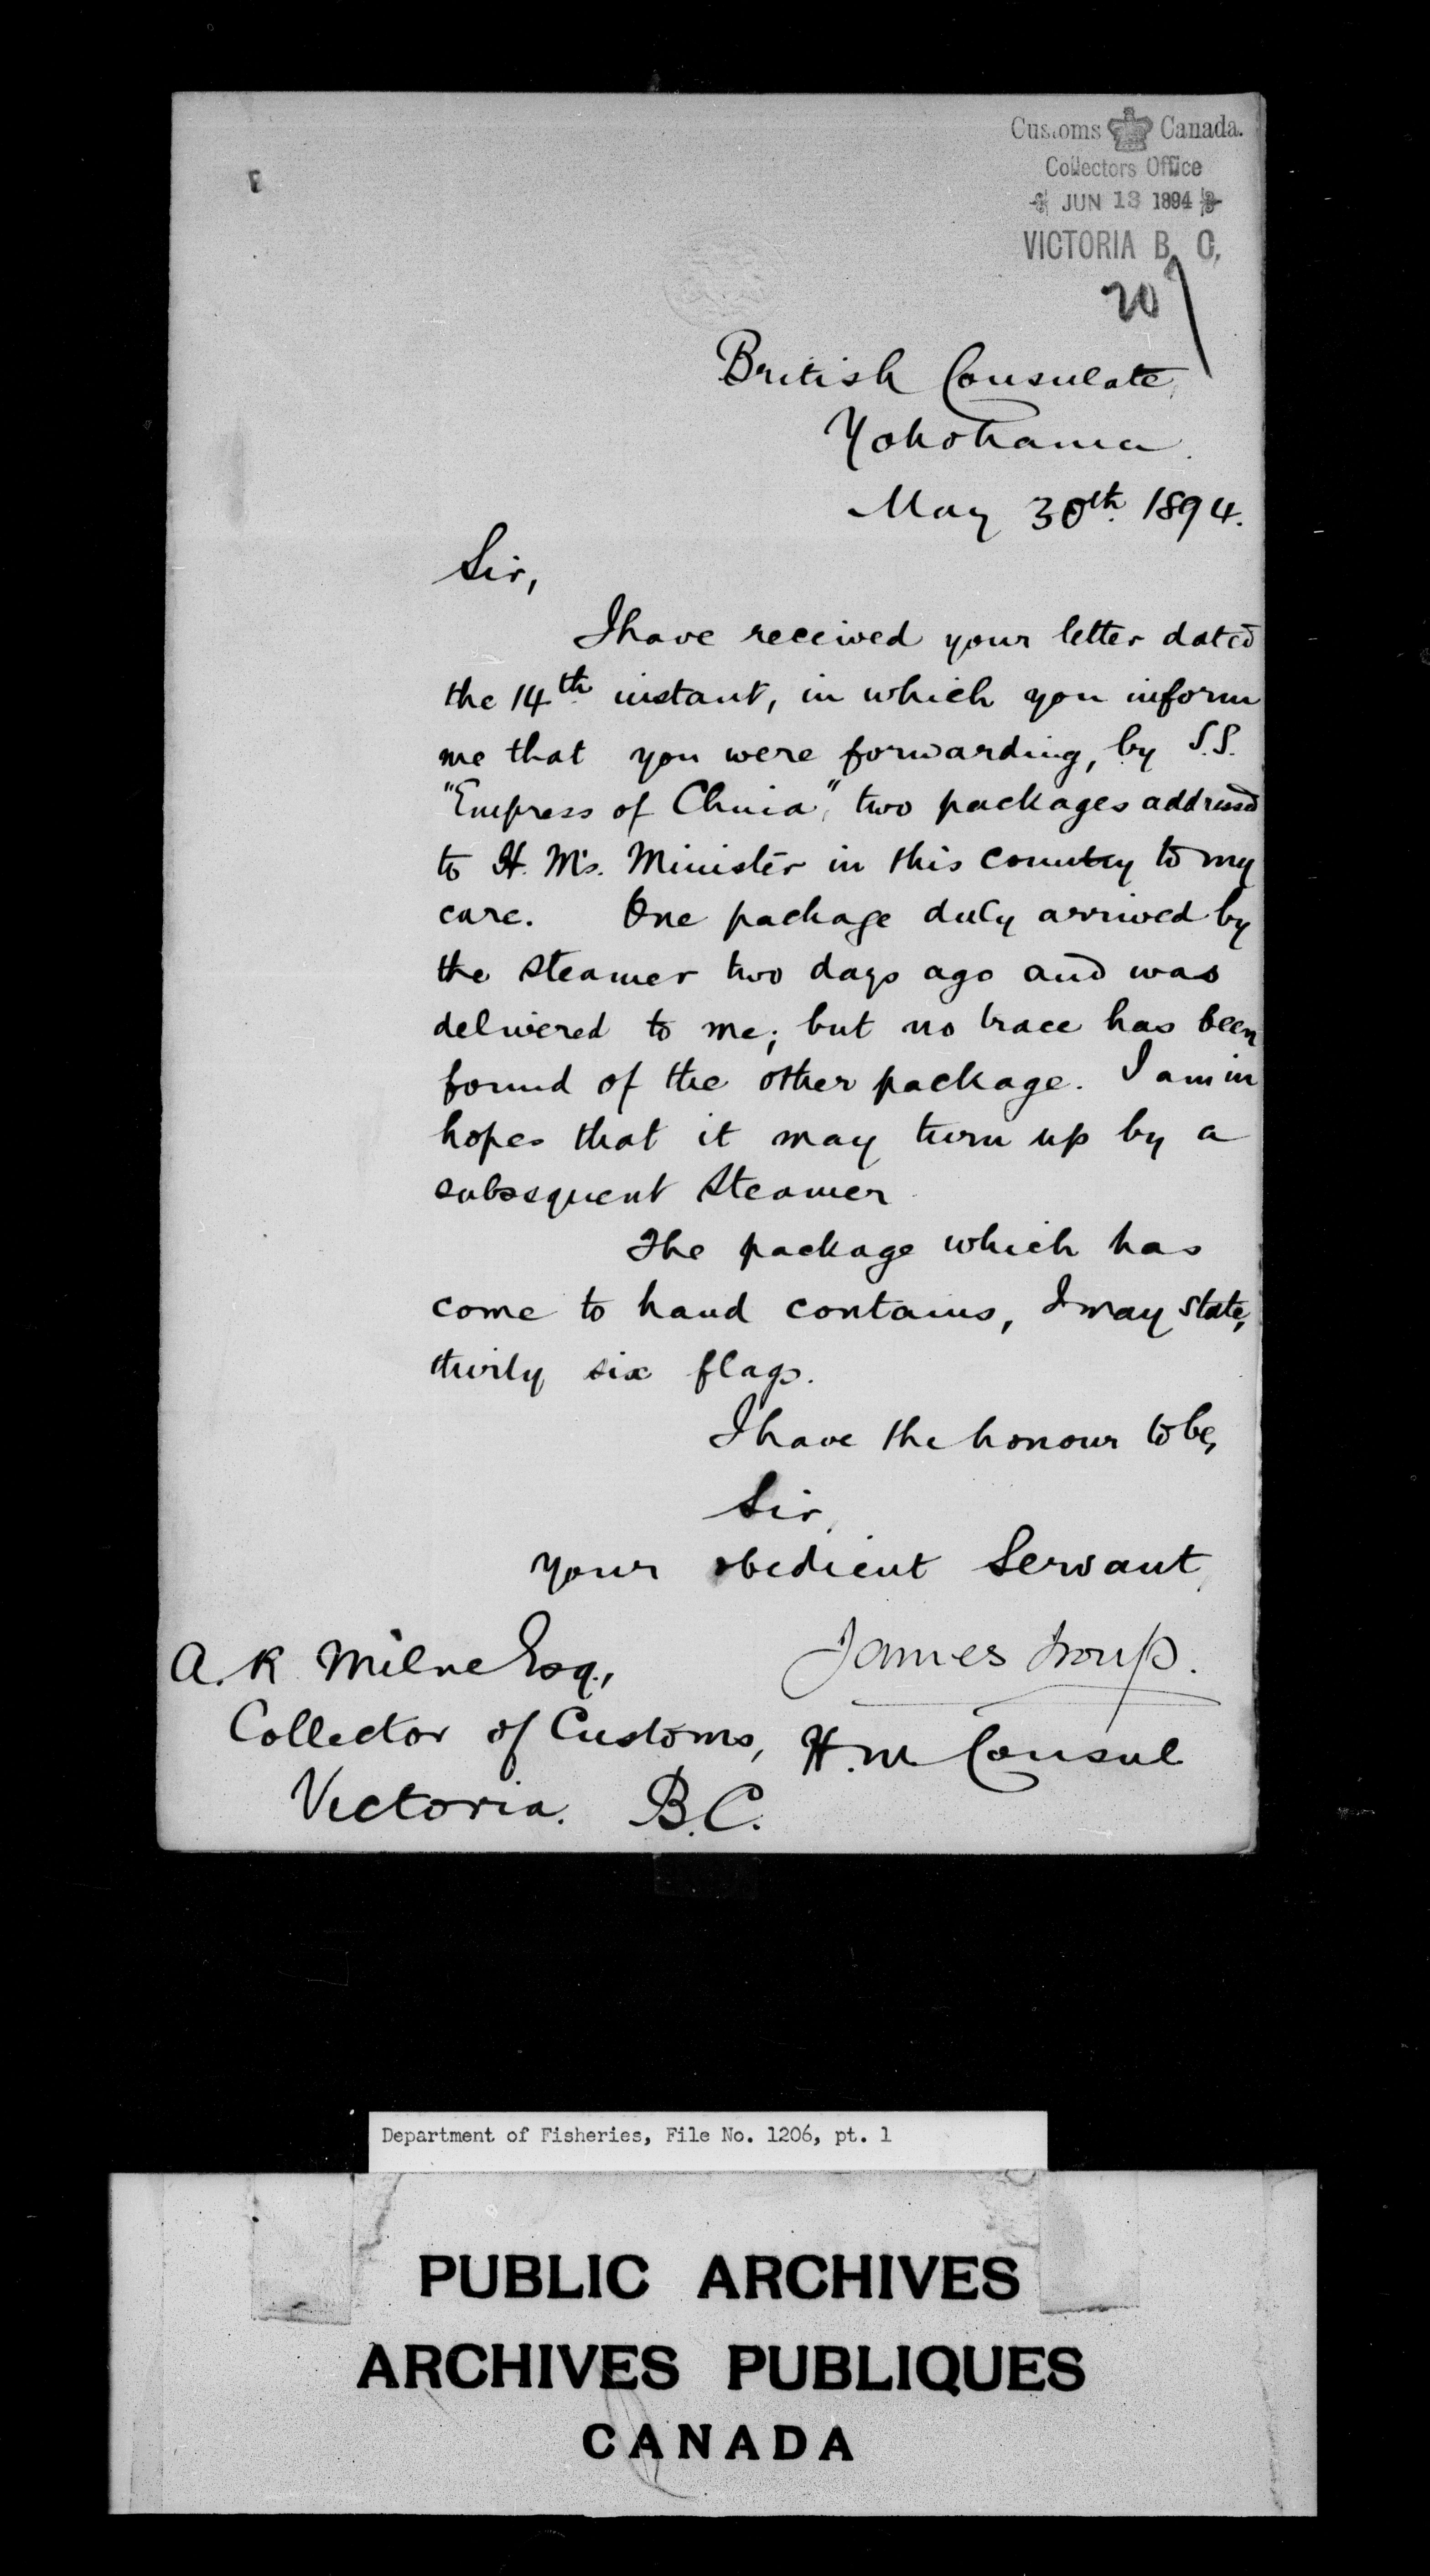 Customs Canada.
Collectors Office
JUN 13 1894
VICTORIA B. C.
20
British Consulate,
Yokohama.
May 30th. 1894.
Sir,
I have received your letter dated
the 14th instant, in which you inform
me that you were forwarding, by S.S.
"Empress of China", two packages addressed
to H. M's. Minister in this country to my
care. One package duly arrived by
the steamer two days ago and was
delivered to me; but no trace has been
found of the other package. I am in
hopes that it may turn up by a
subsequent steamer.
The package which has
come to hand contains, I may state,
thirty six flags.
I have the honour to be,
Sir,
Your obedient Servant,
James Troup.
H.M Consul
A. R Milne Esq.,
Collector of Customs,
Victoria. B.C.
Department of Fisheries, File No. 1206, pt. 1
PUBLIC ARCHIVES
ARCHIVES PUBLIQUES
CANADA